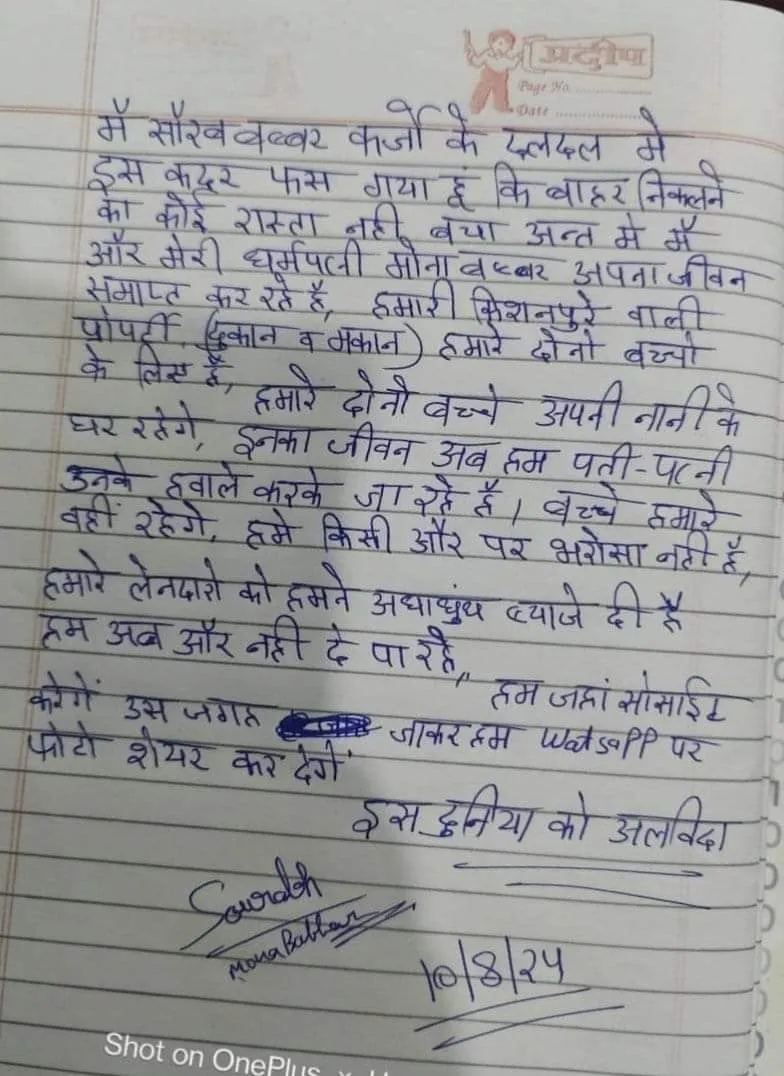 प्रदीप
Page No.
Date
मैं सौरव बब्बर कर्जो के दलदल मे
इस कदर फस गया हूं कि बाहर निकलने
का कोई रास्ता नही बचा अन्त मे मैं
और मेरी धर्मपत्नी मोना बब्बर अपना जीवन
समाप्त कर रहे है, हमारी किशनपुरे वाली
प्रोपर्टी (दुकान व मकान) हमारे दोनो बच्चो
के लिए है, हमारे दोनो बच्चे अपनी नानी के
घर रहेगे, इनका जीवन अब हम पती-पत्नी
उनके हवाले करके जा रहे है। बच्चे हमारे
वहीं रहेगे, हमे किसी और पर भरोसा नही है,
हमारे लेनदारो को हमने अधाधुंध ब्याजे दी है
हम अब और नही दे पा रहे,, हम जहां सोसाईट
करेगें उस जगह जाकर हम Watsapp पर
फोटो शेयर कर देगें
इस दुनिया को अलविदा
Sourabh
Mona Babbar
10/8/24
Shot on OnePlus